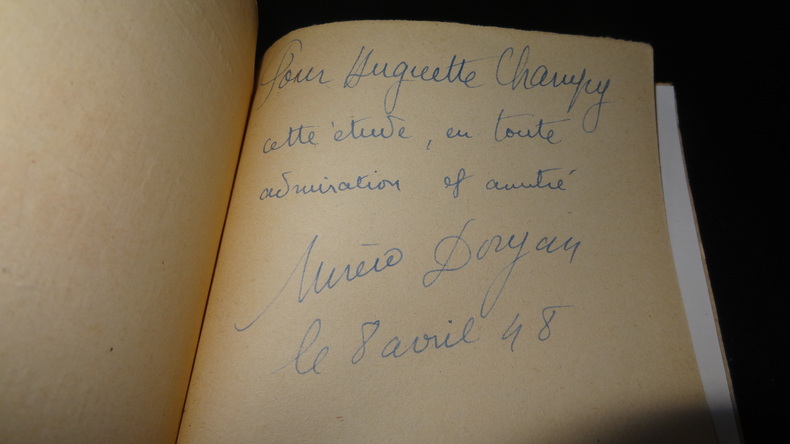 Pour Huguette Champy
cette étude, en toute
admiration et amitié
Mirèio Doryan
le 8 avril 48